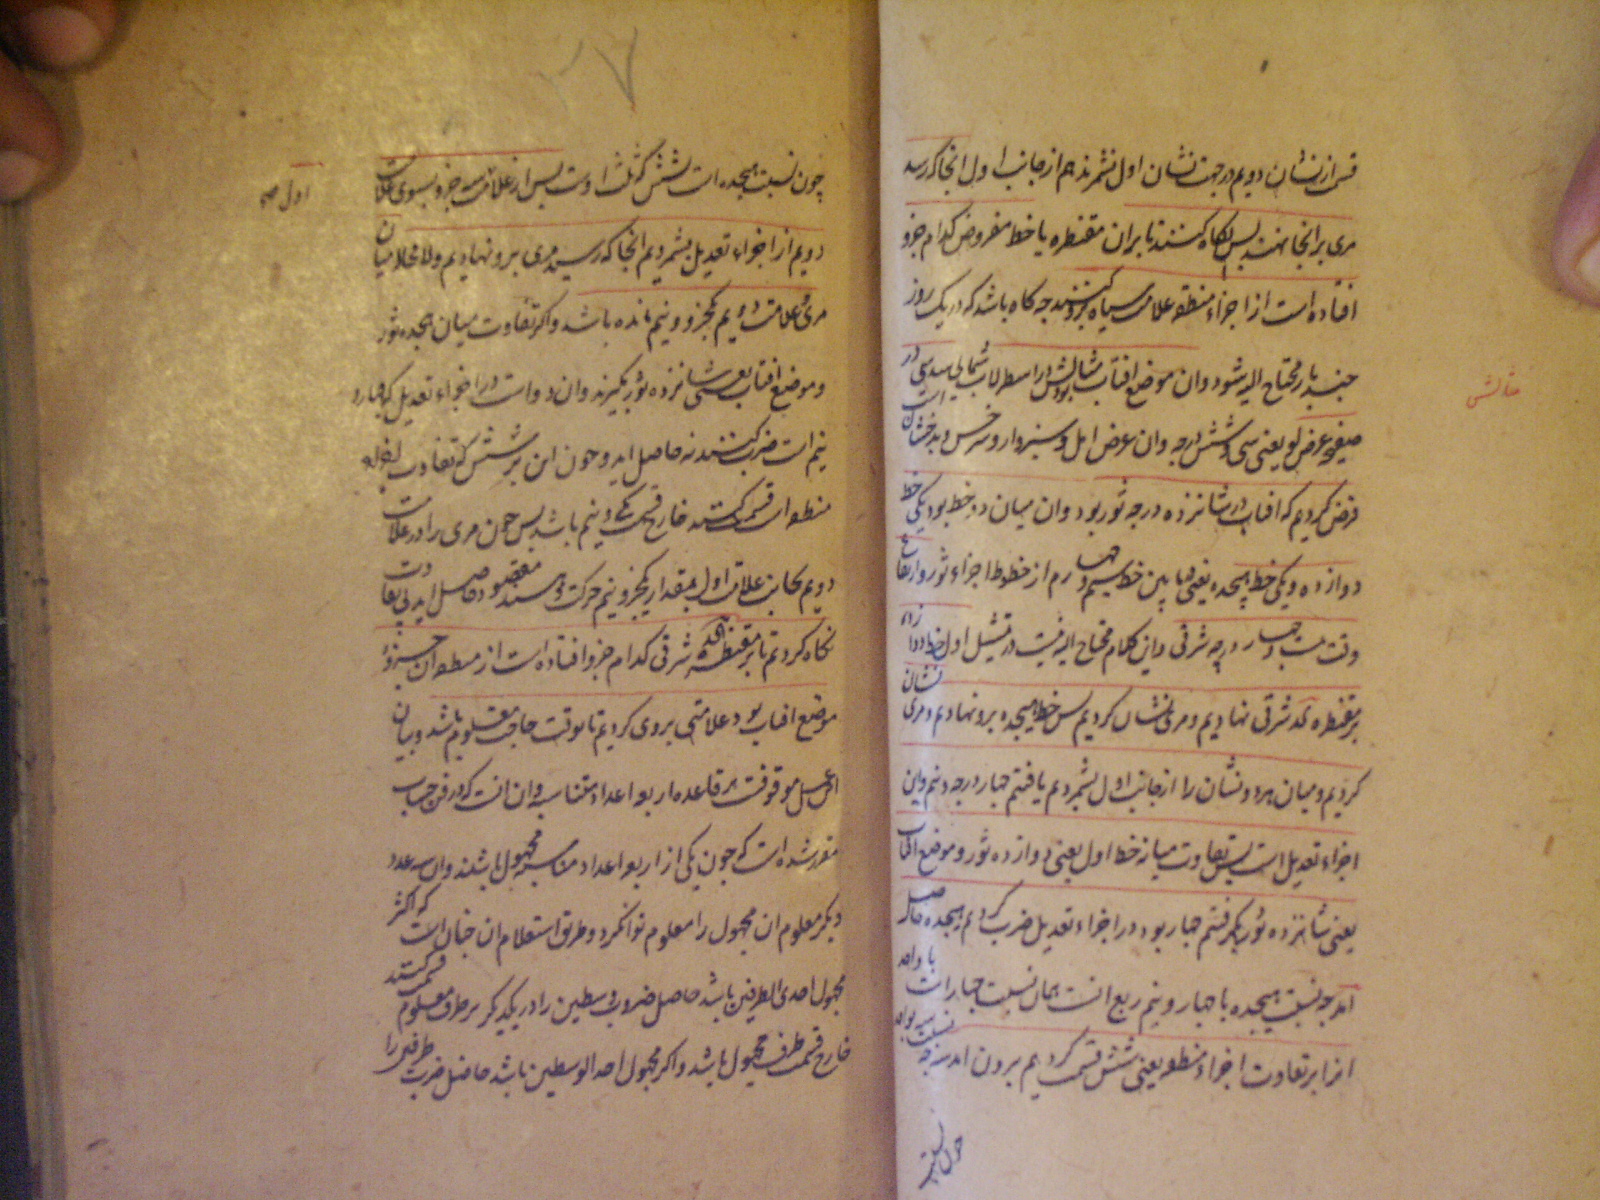 قس از نشان دویم در جهت نشان اول بشمرند هم از جانب اول انجا که رسد
مری بر انجا نهند پس نکاه کنند تا بران مقنطره یا خط مفروض کدام جزو
افتاده است از اجزاء منطقه علامت سیاه برو کنند چه کاه باشد که در یک روز
چند بار محتاج الیه شود وان موضع افتاب باشد مثالش در اسطرلاب شمالی سدسی در
صفیحه عرض لو یعنی سی و شش درجه وان عرض امل و سبزوار و سرخس و بدخشان است
فرض کردیم که افتاب در شانزده درجه ثور بود وان میان دو خط بود یکی خط
دوازده و یکی خط هیجده یعنی مابین خط سیم و چهارم از خطوط اجزاء ثور و ارتفاع
وقت بیست و چهار درجه شرقی و این کلام محتاج الیه نیست در تمثیل اول خط دوازده
بر مقنطره کد شرقی نهادیم و مری نشان کردیم پس خط هیجده برو نهادیم و مری نشان
کردیم و میان هر دو نشان را از جانب اول بشمردیم یافتیم چهار درجه و نیم و این
اجزاء تعدیل است پس تفاوت میانه خط اول یعنی دوازده ثور و موضع افتاب
یعنی شانزده ثور بکرفتیم چهار بود در اجزاء تعدیل ضرب کردیم هیجده حاصل
امد چه نسبت هیجده با چهار و نیم ربع انست همان نسبت چهار است با واحد
انرا بر تفاوت اجزاء منطقه یعنی شش قسمت کردیم برون امد سه چه نسبت سه بواحد
چون نسبت
مثالش
۲۷
چون نسبت هیجده است بشش که ثلث اوست پس از علامت سه جزو بسوی علامت
دویم از اجزاء تعدیل بشمردیم انجا که رسید مری برو نهادیم ولا محاله میان
مری و علامت دویم یکجزو و نیم مانده باشد و اکر تفاوت میان هیجده ثور
و موضع افتاب یعنی شانزده ثور بکیرند وان دو است در اجزاء تعدیل که چهار و
نیم است ضرب کنند نه حاصل اید و چون این بر شش که تفاوت اجزاء
منطقه است قسمت کنند خارج قسمت یکی و نیم باشد پس چون مری را در علامت
دویم بجانب علامت اول بمقدار یکجزو و نیم حرکت دهند مقصود حاصل اید بی تفاوت
نکاه کردیم تا بر مقنطره کد شرقی کدام جزو افتاده است از منطقه ان جزو
موضع افتاب بود علامتی بر وی کردیم تا بوقت حاجت معلوم باشد و بیان ان
عمل موقوفست بر قاعده اربعه اعداد متناسبه وان انست که در فن حساب
مقرر شده است که چون یکی از اربعه اعداد متناسبه مجهول باشند وان سه عدد
دیکر معلوم ان مجهول را معلوم توان کرد و طریق استعلام ان چنان است که اکر
مجهول احدی الطرفین باشد حاصل ضرب وسطین را در یکدیکر بر طرف معلوم قسمت کنند
خارج قسمت طرف مجهول باشد و اکر مجهول احد الوسطین باشد حاصل ضرب طرفین را
اول صح